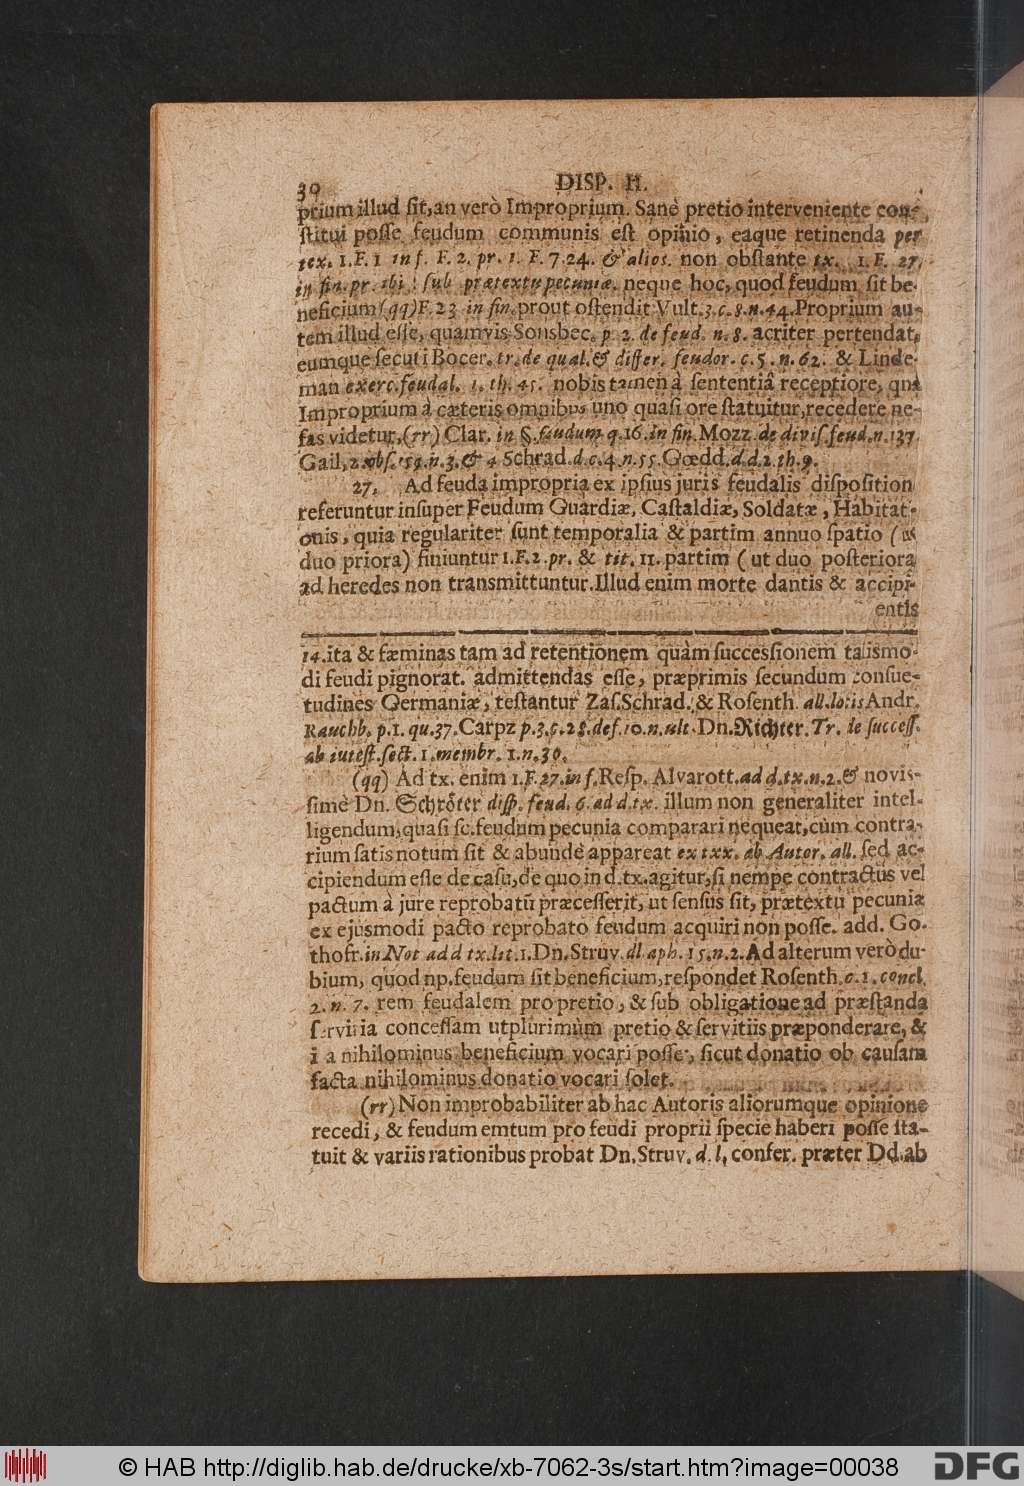 30 DISP. II.
prium illud ſit, an verò Improprium. Sanè pretio interveniente con-
ſtitui poſſe feudum communis eſt opinio, eaque retinenda per
tex. 1. F. 1 in f. F. 2. pr. 1. F. 7. 24. & alios. non obſtante tx. 1. F. 27.
in fin. pr. ibi: ſub prætextu pecuniæ. neque hoc, quod feudum ſit be-
neficium (qq) F. 23 in fin. prout oſtendit Vult. 3. c. 8. n. 44. Proprium au-
tem illud eſſe, quamvis Sonsbec. p. 2. de feud. n. 8. acriter pertendat,
eumque ſecuti Bocer. tr. de qual. & differ. feudor. c. 5. n. 62. & Linde-
man exerc. feudal. 1. th. 45. nobis tamen à ſententiâ receptiore, quâ
Improprium à cæteris omnibus uno quaſi ore ſtatuitur, recedere ne-
fas videtur, (rr) Clar. in §. feudum q. 16. in fin. Mozz. de diviſ. feud. n. 137.
Gail, 2. obſ. 154. n. 3. & 4 Schrad. d. c. 4. n. 55. Gœdd. d. d. 2. th. 9.
27. Ad feuda impropria ex ipſius juris feudalis diſpoſition
referuntur inſuper Feudum Guardiæ, Caſtaldiæ, Soldatæ, Habitati-
onis, quia regulariter ſunt temporalia & partim annuo ſpatio (ut
duo priora) finiuntur 1. F. 2. pr. & tit. 11. partim (ut duo poſteriora
ad heredes non transmittuntur. Illud enim morte dantis & accipi-
entis
14. ita & fæminas tam ad retentionem quàm ſucceſſionem talismo-
di feudi pignorat. admittendas eſſe, præprimis ſecundum conſue-
tudines Germaniæ, teſtantur Zaſ. Schrad. & Roſenth. all. locis Andr.
Rauchb. p. 1. qu. 37. Carpz p. 3. c. 28. def. 10. n. ult. Dn. Richter. Tr. de ſucceſſ.
ab inteſt. ſect. 1. membr. 1. n. 30.
(qq) Ad tx. enim 1. F. 27. in f. Reſp. Alvarott. ad d. tx. n. 2. & noviſ-
ſimè Dn. Schröter diſp. feud. 6. ad d. tx. illum non generaliter intel-
ligendum, quaſi ſc. feudum pecunia comparari nequeat, cùm contra-
rium ſatis notum ſit & abundè appareat ex txx. ab Autor. all. ſed ac-
cipiendum eſſe de caſu, de quo in d. tx. agitur, ſi nempe contractus vel
pactum à jure reprobatū præceſſerit, ut ſenſus ſit, prætextu pecuniæ
ex ejusmodi pacto reprobato feudum acquiri non poſſe. add. Go-
thofr. in Not ad d tx. lit. 1. Dn. Struv. d. aph. 15. n. 2. Ad alterum verò du-
bium, quod np. feudum ſit beneficium, reſpondet Roſenth. c. 1. concl.
2. n. 7. rem feudalem pro pretio, & ſub obligatione ad præſtanda
ſervitia conceſſam utplurimùm pretio & ſervitiis præponderare, &
ita nihilominus beneficium vocari poſſe, ſicut donatio ob cauſam
facta nihilominus donatio vocari ſolet.
(rr) Non improbabiliter ab hac Autoris aliorumque opinione
recedi, & feudum emtum pro feudi proprii ſpecie haberi poſſe ſta-
tuit & variis rationibus probat Dn. Struv. d. l. confer. præter Dd. ab
© HAB http://diglib.hab.de/drucke/xb-7062-3s/start.htm?image=00038
DFG